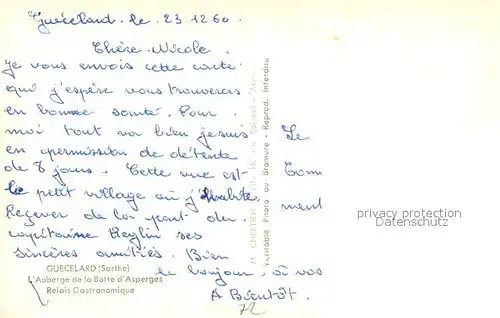 Guécelard. le. 23 12 60.
Chère Nicole.
Je vous envois cette carte
qui j'espère vous trouveras
en bonne santé. Pour
moi tout va bien je suis
en permission de détente
de 8 jours. Cette vue est
le petit village où j'habite
Recever de la part du
capitaine Keylin ses
sincères amitiés. Bien
le bonjour à vos
A Bientôt.
Le
ment
72
GUECELARD (Sarthe)
L'Auberge de la Botte d'Asperges
Relais Gastronomique
Véritable Photo au Bromure - Reprod. Interdite
privacy protection
Datenschutz